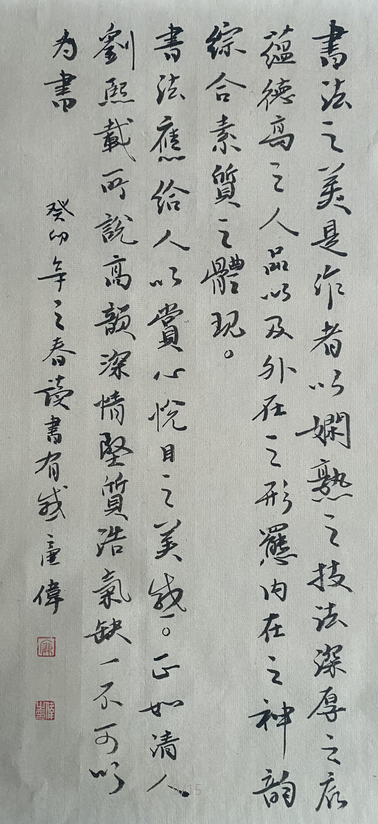 書法之美是作者以嫻熟之技法深厚之底
蕴德高之人品以及外在之形態内在之神韵
綜合素質之體現。
書法應给人以賞心悦目之美感。正如清人
劉熙載所說高韻深情堅質浩氣缺一不可以
为書
癸卯年之春读書有感童偉